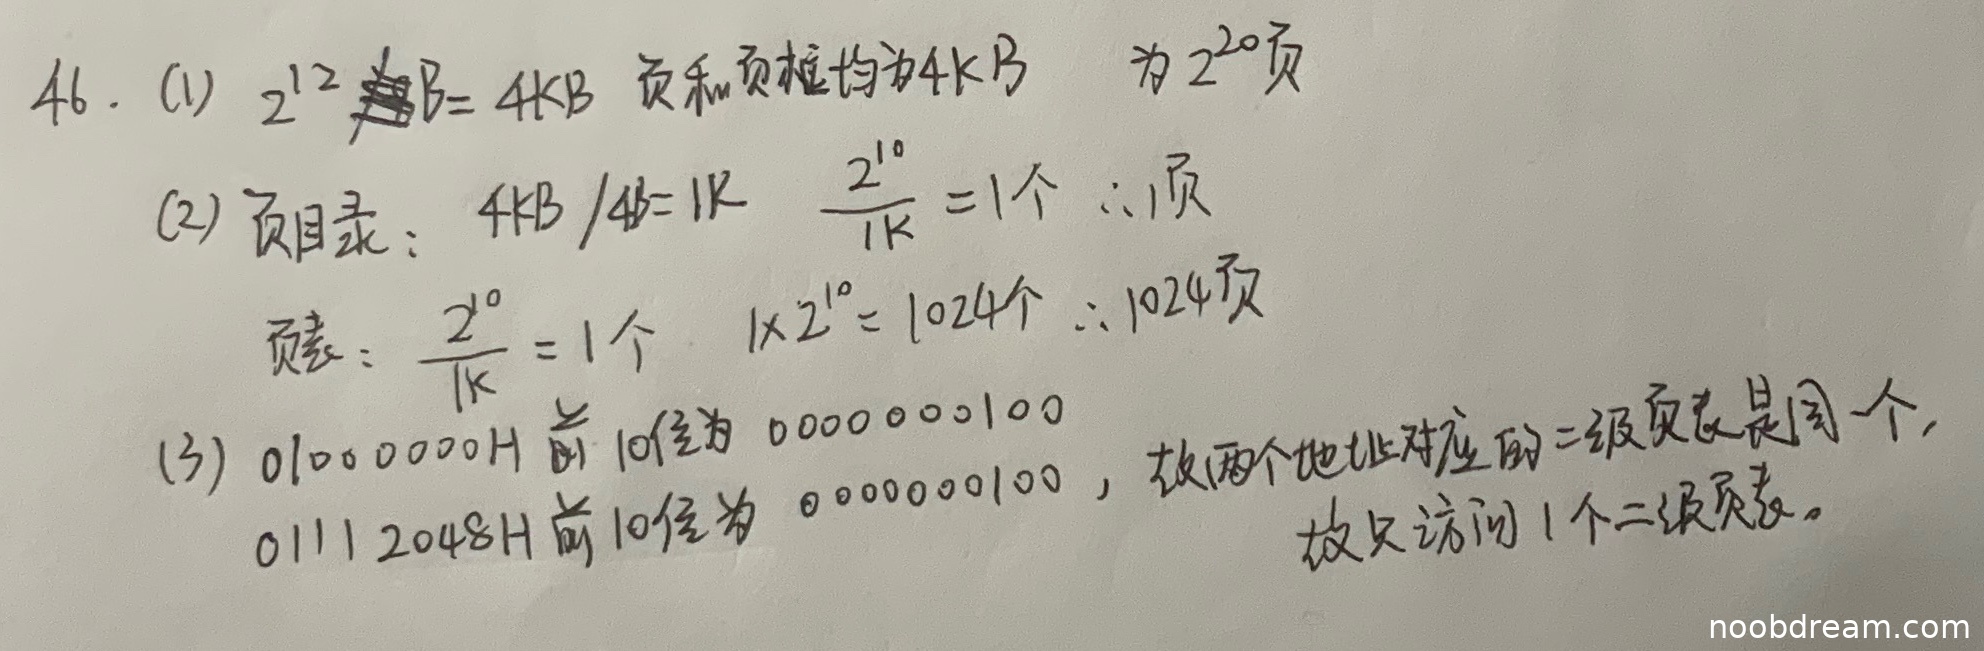 46. (1) 2^12 B = 4KB 页和页框均为4KB 为2^20页
(2) 页目录: 4KB/4B=1K 2^10/1K = 1个 ∴1页
页表: 2^10/1K = 1个 1×2^10 = 1024个 ∴1024页
(3) 01000000H 前10位为 0000000100
01112048H 前10位为 0000000100, 故两个地址对应的二级页表是同一个,
故只访问1个二级页表。
noobdream.com